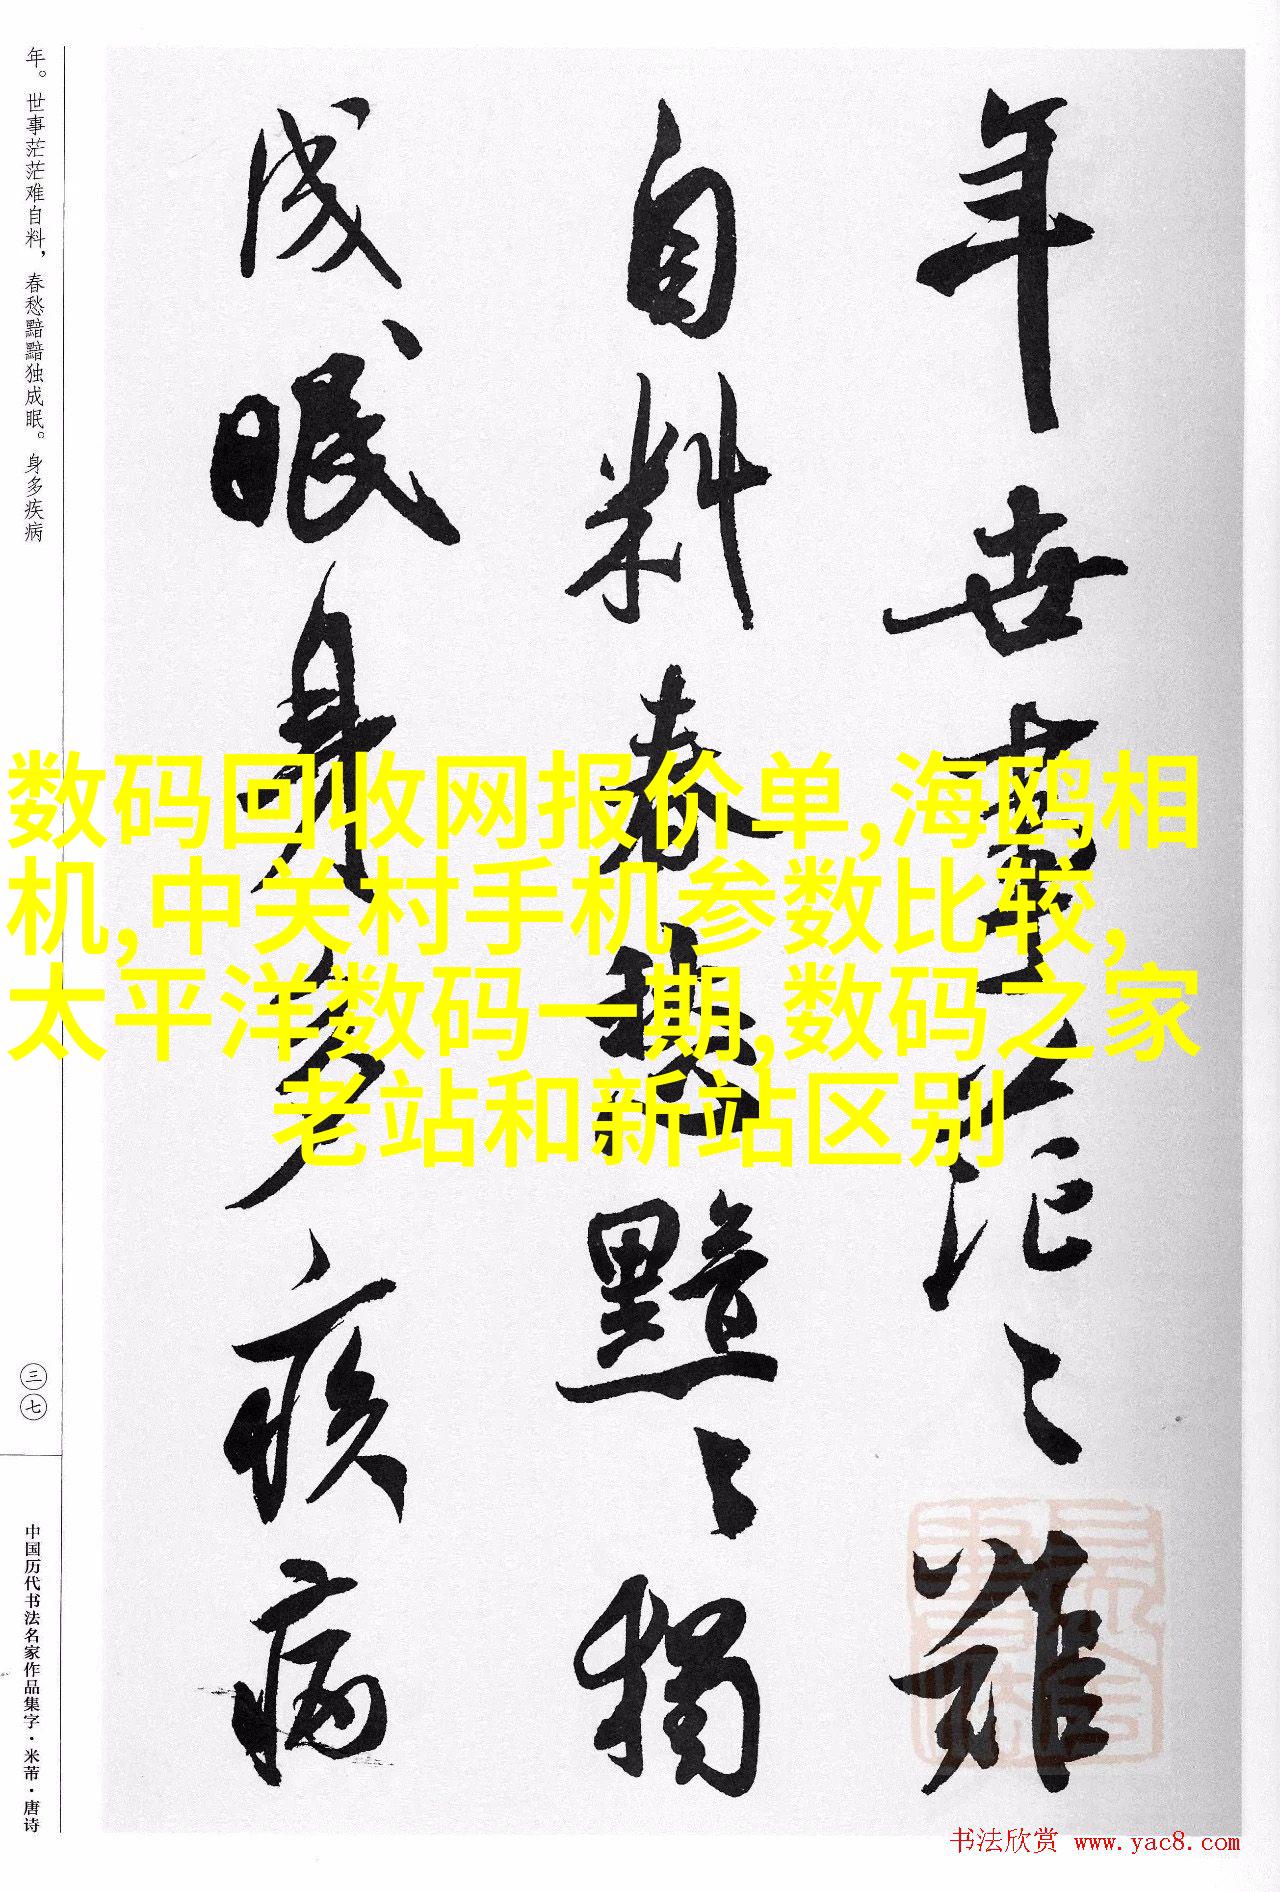 年。世事茫茫难自料，春愁黯黯独成眠。身多疾病
三七
中国历代书法名家作品集字·米芾·唐诗
年世事茫〻難
自料春愁黯〻獨
成眠身多疾病
数码回收网报价单,海鸥相
机,中关村手机参数比较,
太平洋数码一期,数码之家
老站和新站区别
书法欣赏 www.yac8.com